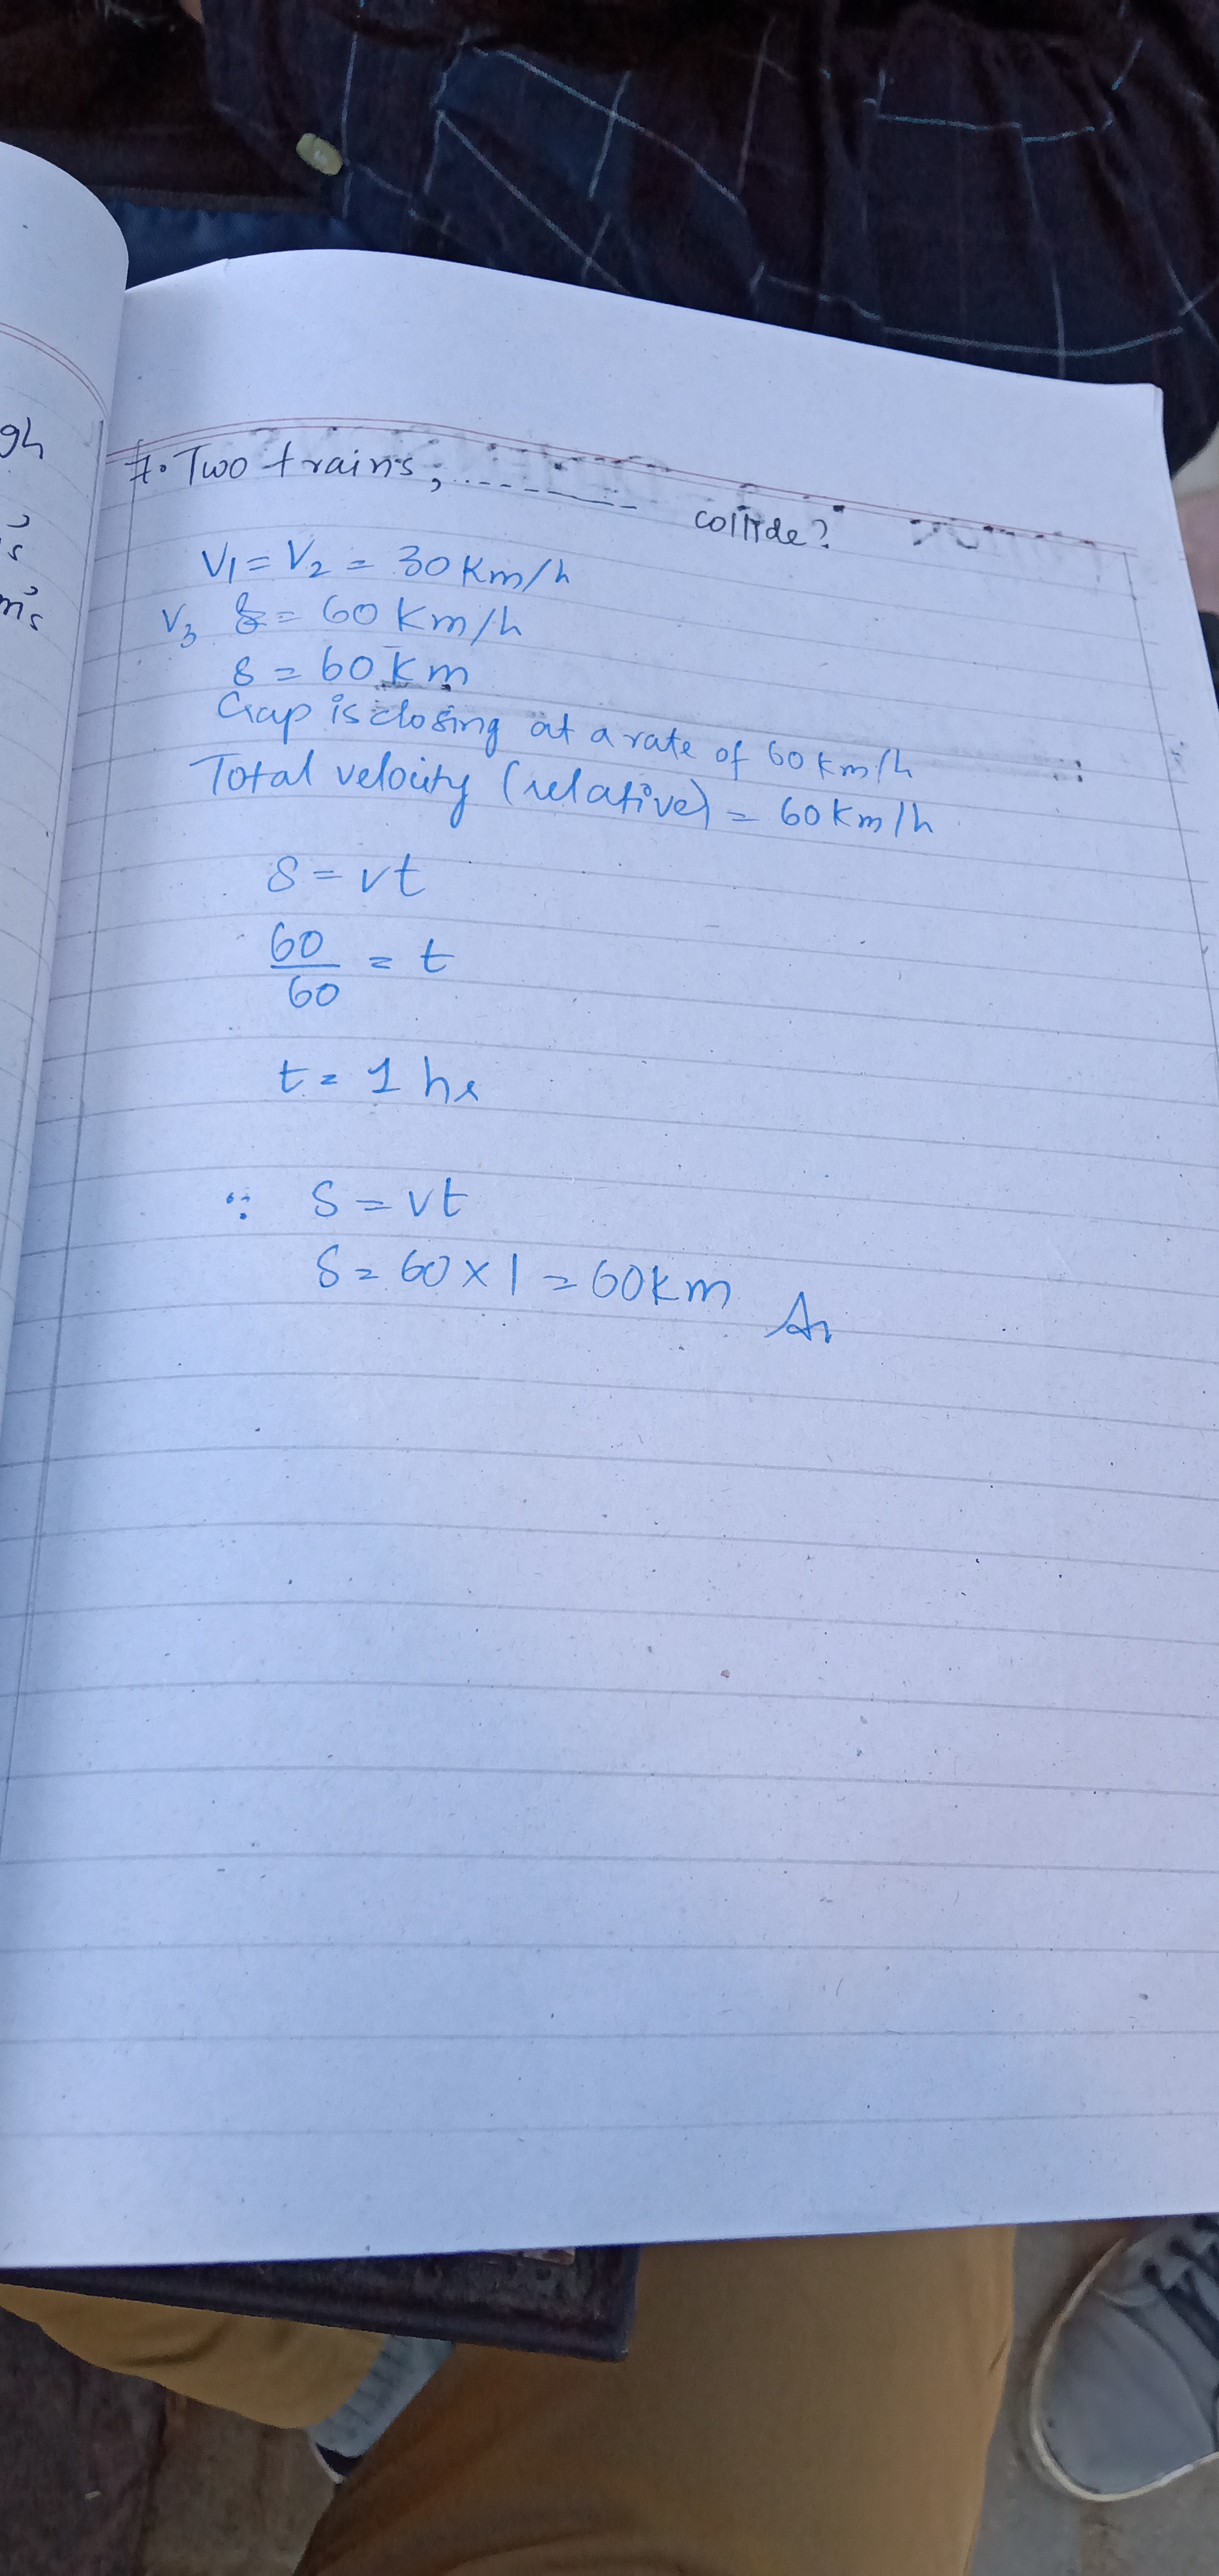 gh
's
m's
7. Two trains, .......... ------- collide?
V1 = V2 = 30 Km/h
V3 = 60 Km/h
s = 60 km
Gap is closing at a rate of 60 km/h
Total velocity (relative) = 60 Km/h
s = vt
60/60 = t
t = 1 hr
∵ s = vt
s = 60 × 1 = 60 km